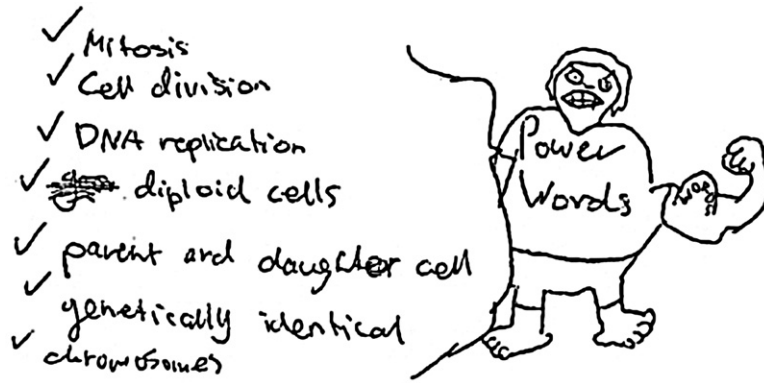 ✓ Mitosis
✓ Cell division
✓ DNA replication
✓ diploid cells
✓ parent and daughter cell
✓ genetically identical
✓ chromosomes
Power
Words